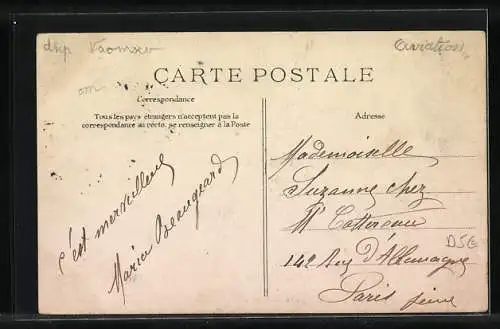 Aviation
CARTE POSTALE
Correspondance
Tous les pays étrangers n'acceptent pas la
correspondance au recto, se renseigner à la Poste
c'est merveilleux
Maria Beaugeard
Adresse
Mademoiselle
Suzanne chez
142 Rue D'Allemagne
Paris Seine